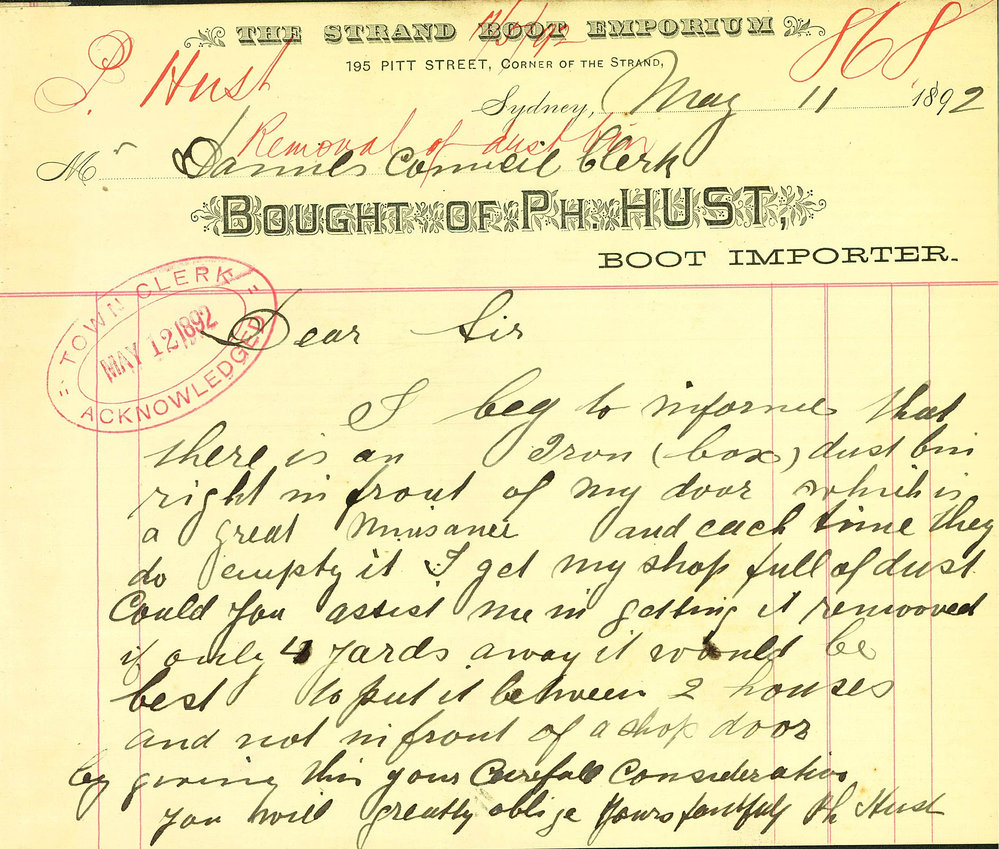 11/5/92
THE STRAND BOOT EMPORIUM
868
P. Hust
195 PITT STREET, CORNER OF THE STRAND,
Sydney, May 11 1892
Removal of dust bin
Mr Daniels Council Clerk
BOUGHT OF PH. HUST,
BOOT IMPORTER.
TOWN CLERK
MAY 12 1892
ACKNOWLEDGED
Dear Sir
I beg to informe that
there is an Iron (box) dust bin
right in front of my door which is
a great Nuisance and each time they
do empty it I get my shop full of dust
Could you assist me in getting it remooved
if only 4 yards away it would be
best to put it between 2 houses
and not in front of a shop door
by giving this your Carefull Consideration
you will greatly oblige yours faithfuly Ph Hust